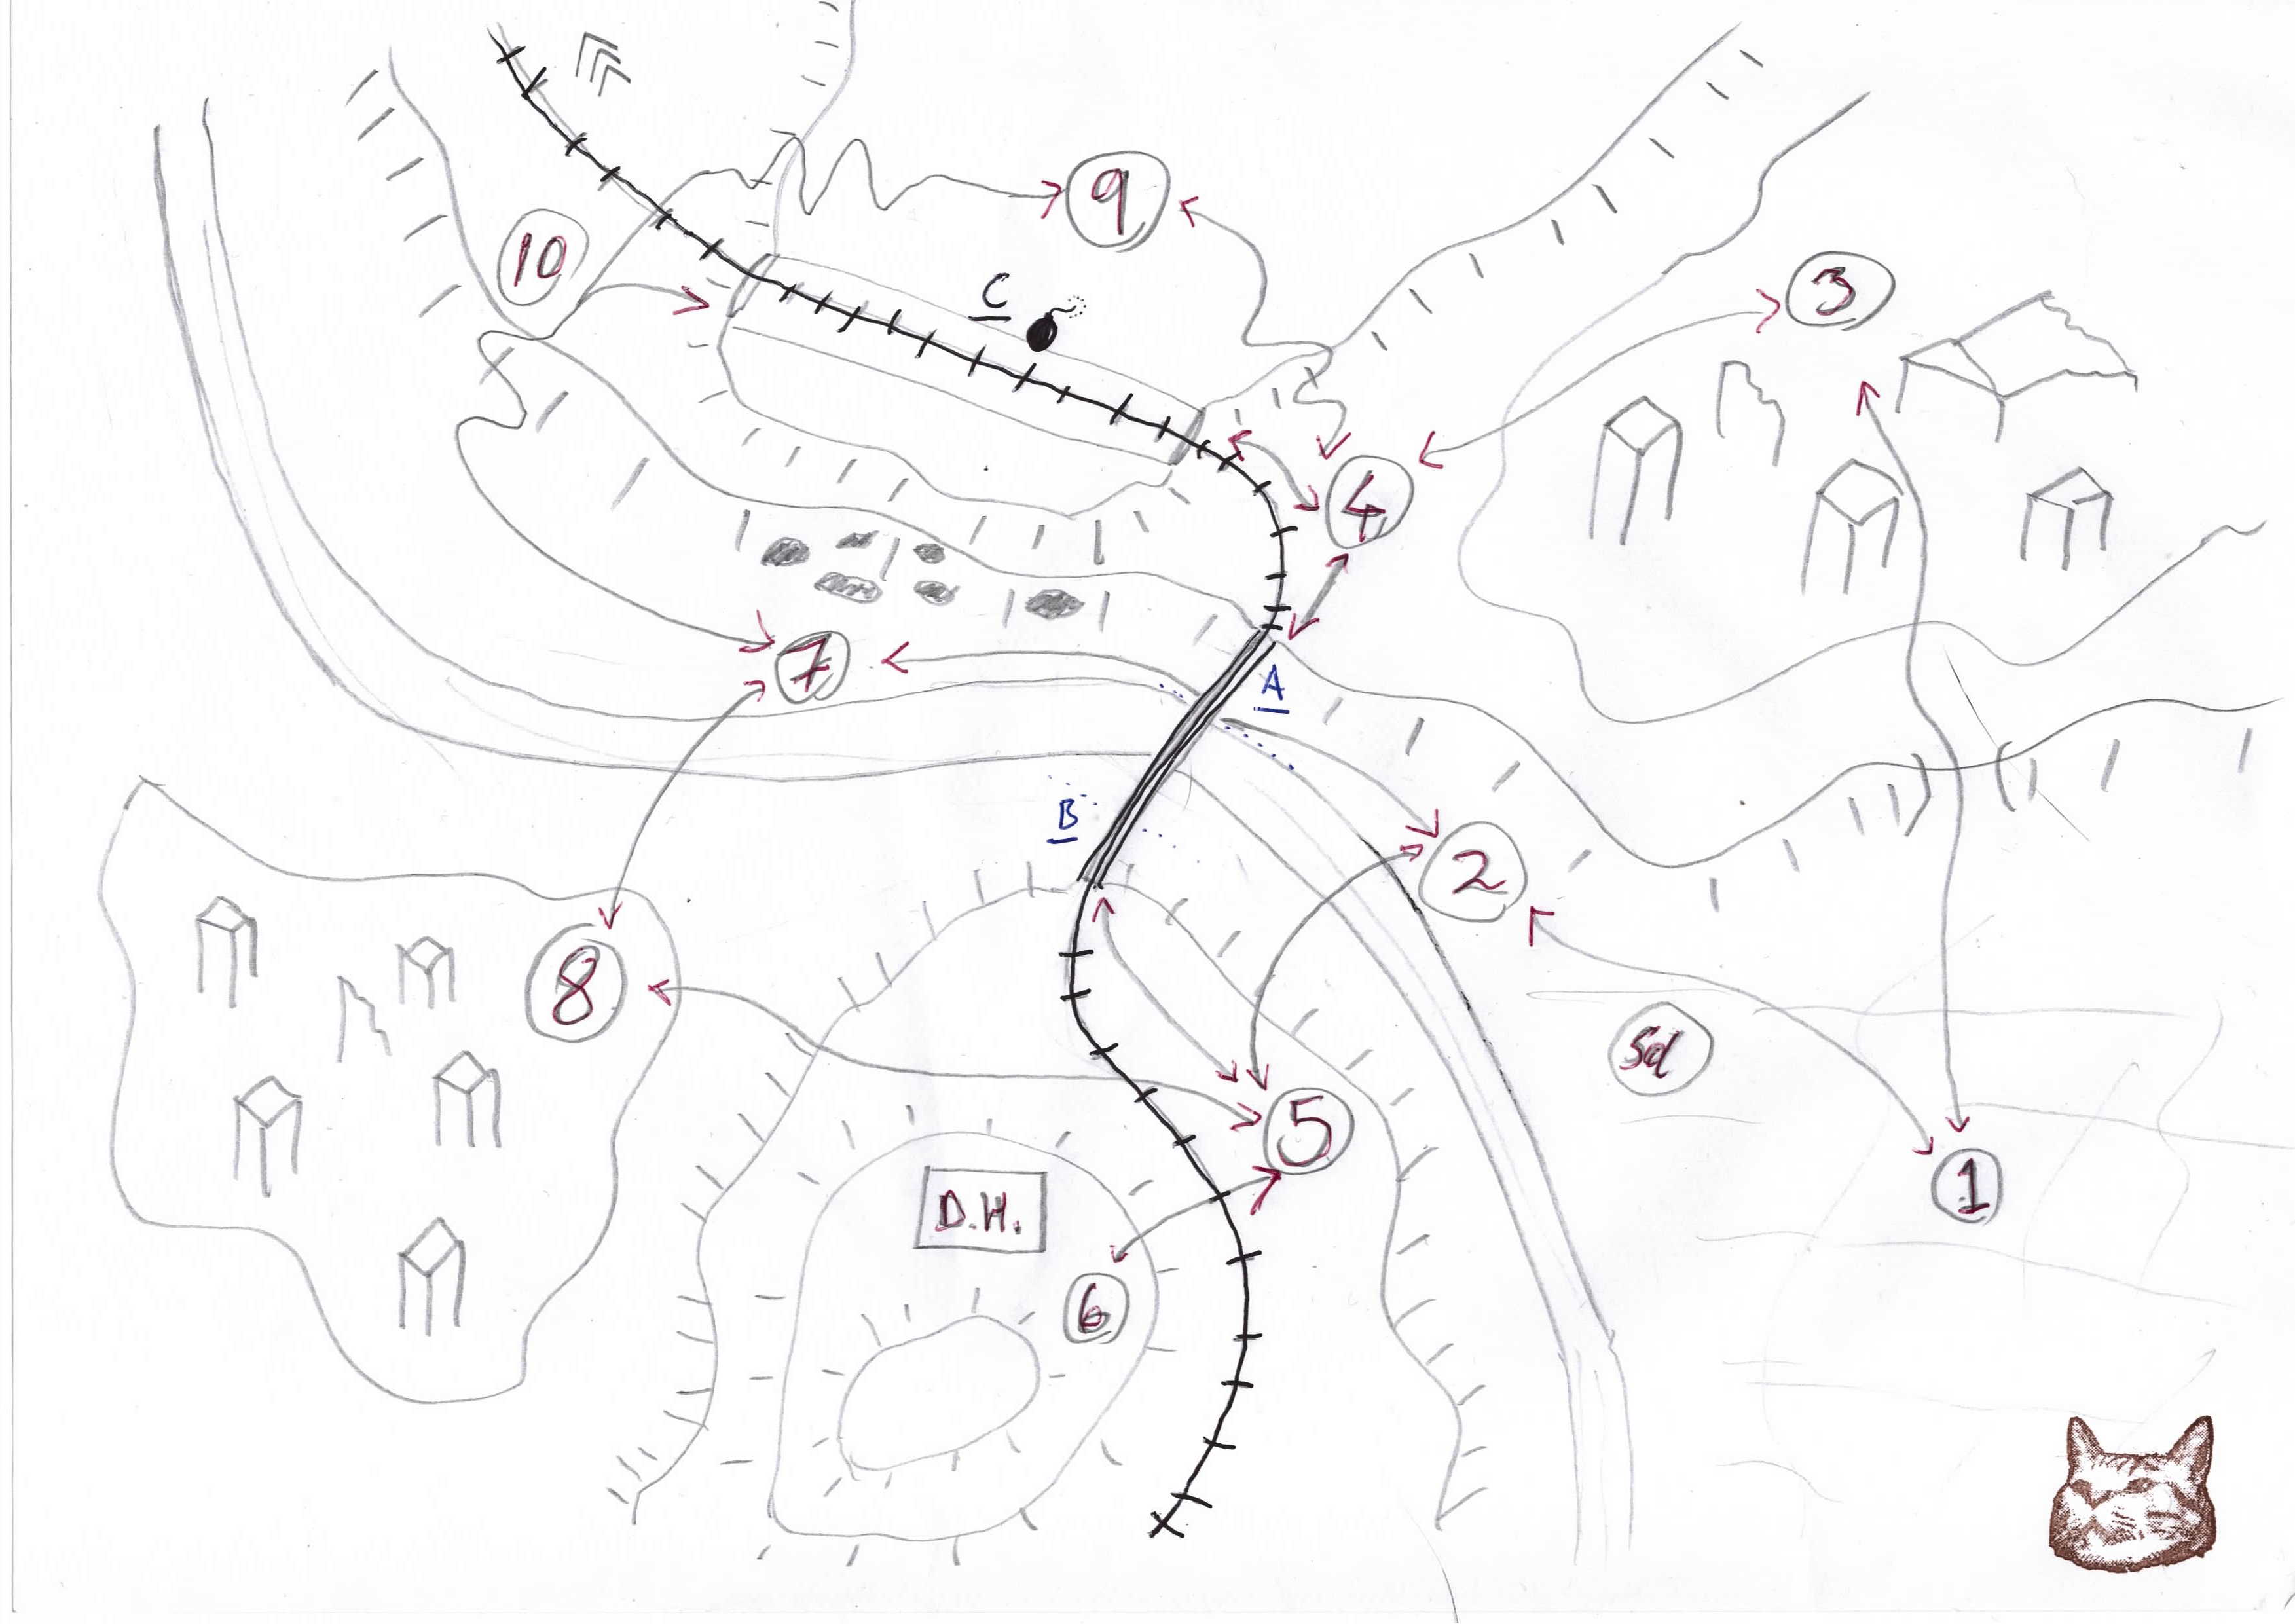 9
10
C
3
4
7
A
B
2
8
Sd
5
1
D.H.
6